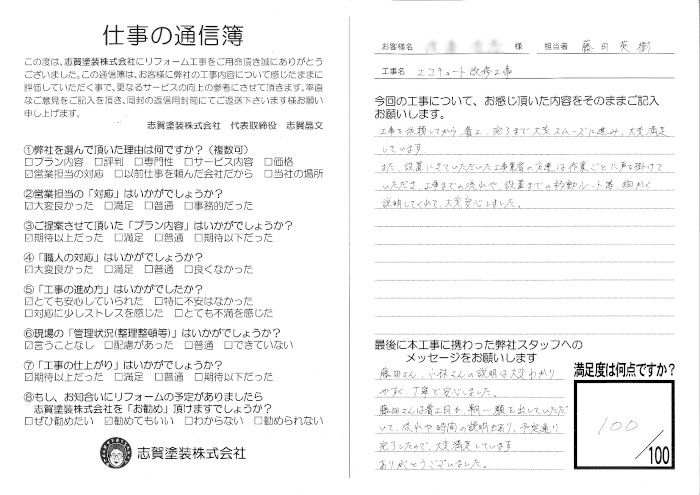 仕事の通信簿
この度は、志賀塗装株式会社にリフォーム工事をご用命頂き誠にありがとう
ございました。この通信簿は、お客様に弊社の工事内容について感じたままに
評価していただく事で、更なるサービスの向上の参考にさせて頂きます。率直
なご意見をご記入を頂き、同封の返信用封筒にてご返送下さいます様お願い
申し上げます。
志賀塗装株式会社 代表取締役 志賀晶文
①弊社を選んで頂いた理由は何ですか?（複数可）
□プラン内容 □評判 □専門性 □サービス内容 □価格
☑営業担当の対応 □以前仕事を頼んだ会社だから □当社の場所
②営業担当の「対応」はいかがでしょうか?
☑大変良かった □満足 □普通 □事務的だった
③ご提案させて頂いた「プラン内容」はいかがでしたか?
☑期待以上だった □満足 □普通 □期待以下だった
④「職人の対応」はいかがでしょうか?
☑大変良かった □満足 □普通 □良くなかった
⑤「工事の進め方」はいかがでしたか?
☑とても安心していられた □特に不安はなかった
□対応に少しストレスを感じた □とても不満を感じた
⑥現場の「管理状況(整理整頓等)」はいかがでしょうか?
☑言うことなし □配慮があった □普通 □できていない
⑦「工事の仕上がり」はいかがでしょうか?
☑期待以上だった □満足 □普通 □期待以下だった
⑧もし、お知合いにリフォームの予定がありましたら
志賀塗装株式会社を「お勧め」頂けますでしょうか?
□ぜひ勧めたい ☑勧めてもいい □わからない □勧められない
志賀塗装株式会社
お客様名 様 担当者 藤田英樹
工事名 エコキュート改修工事
今回の工事について、お感じ頂いた内容をそのままご記入
お願いします。
工事を依頼してから着工、完了まで大変スムーズに進み、大変満足
しています。
また、設置にきていただいた工事業者の方達は作業ごとに声を掛けて
いただき、工事までの流れや、設置までの移動ルート等、細かく
説明してくれて、大変安心しました。
最後に本工事に携わった弊社スタッフへの
メッセージをお願いします
藤田さん、小林さんの説明は大変わかり
やすく、丁寧で安心しました。
藤田さんは着工日も朝一顔を出していただ
いて、流れや時間の説明もあり、予定通り
完了したので、大変満足しています
ありがとうございました。
満足度は何点ですか?
100
/100